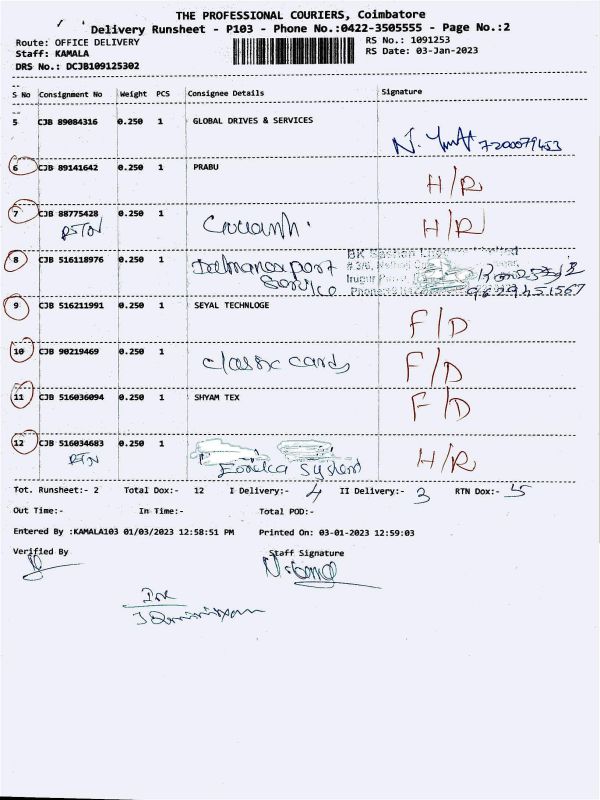 THE PROFESSIONAL COURIERS, Coimbatore
Delivery Runsheet - P103 - Phone No.:0422-3505555 - Page No.:2
Route: OFFICE DELIVERY RS No.: 1091253
Staff: KAMALA RS Date: 03-Jan-2023
DRS No.: DCJB109125302
S No Consignment No Weight PCS Consignee Details Signature
5 CJB 89084316 0.250 1 GLOBAL DRIVES & SERVICES
7200079453
6 CJB 89141642 0.250 1 PRABU H/R
7 CJB 88775428 0.250 1 H/R
8 CJB 516118976 0.250 1
Service 9629451567
9 CJB 516211991 0.250 1 SEYAL TECHNLOGE F/D
10 CJB 90219469 0.250 1 classic cards F/D
11 CJB 516036094 0.250 1 SHYAM TEX F/D
12 CJB 516034683 0.250 1 H/R
RTN System
Tot. Runsheet:- 2 Total Dox:- 12 I Delivery:- 4 II Delivery:- 3 RTN Dox:- 5
Out Time:- In Time:- Total POD:-
Entered By :KAMALA103 01/03/2023 12:58:51 PM Printed On: 03-01-2023 12:59:03
Verified By Staff Signature